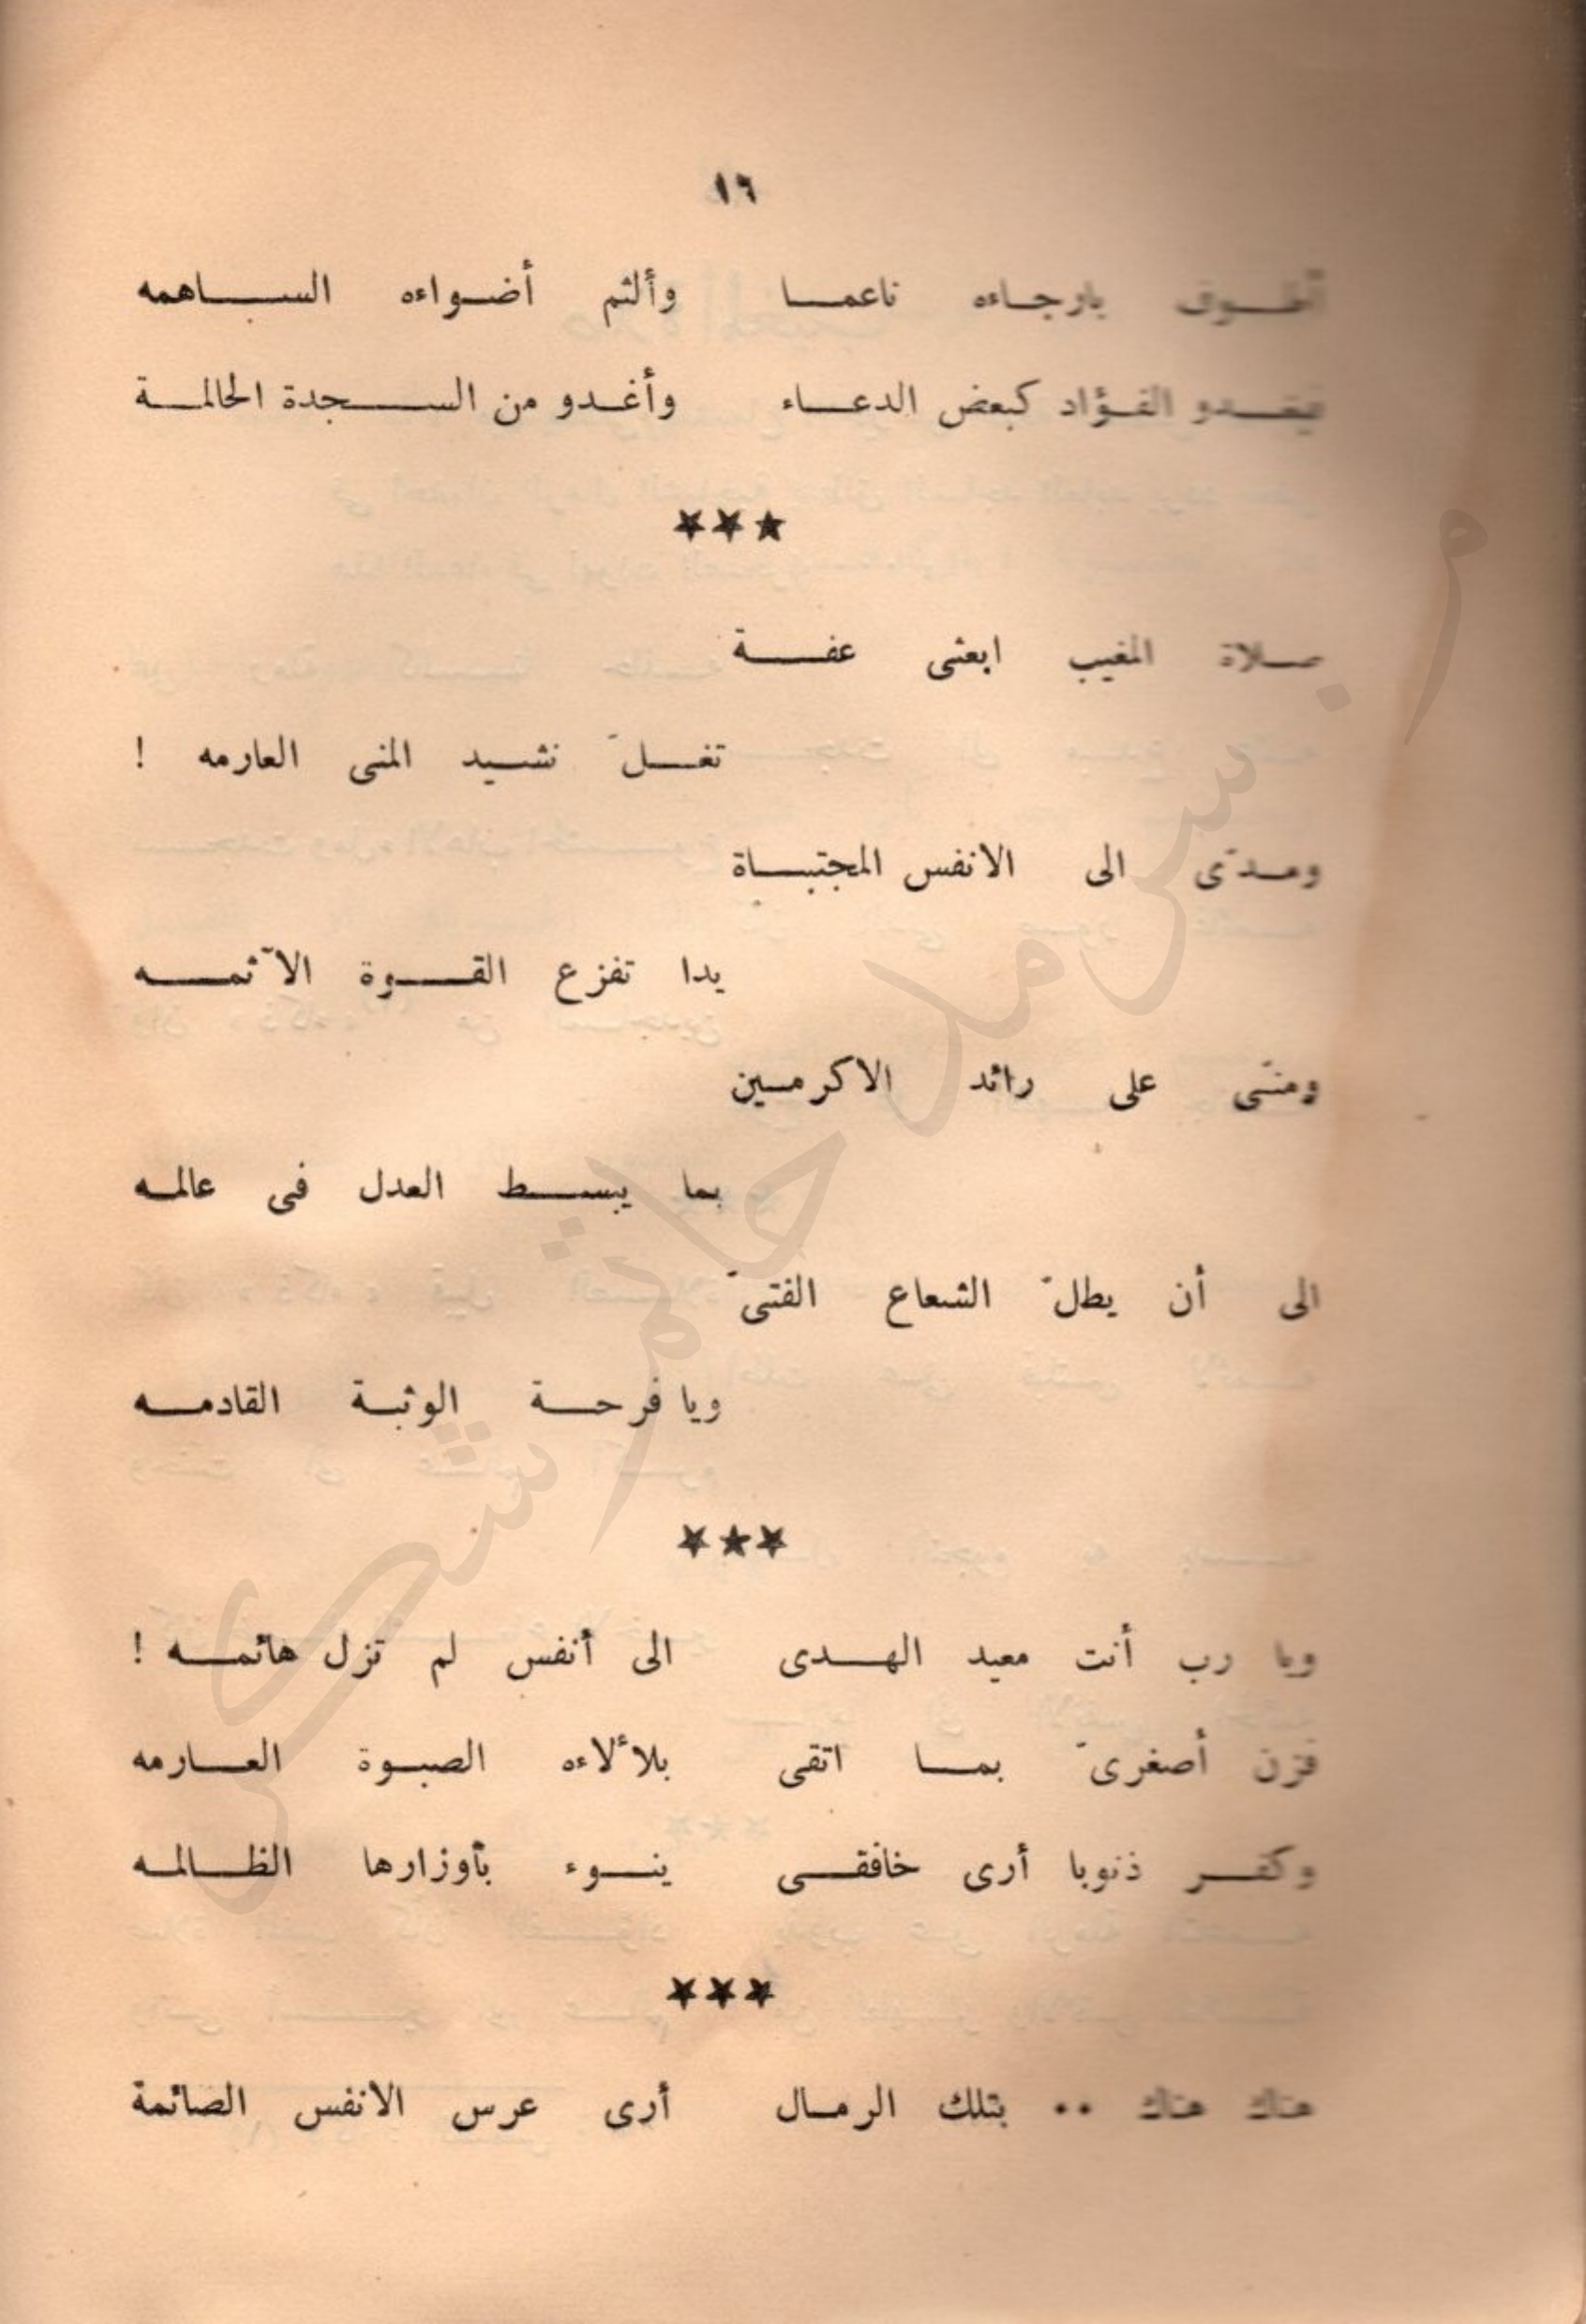 ١٦
أطوف بارجاءه ناعما وألثم أضواءه الساهمه
فيغدو الفؤاد كبعض الدعاء وأغدو من السجدة الحالمة
★★★
صلاة المغيب ابعثى عفة
تغلّ نشيد المنى العارمه !
ومدّى الى الانفس المجتباة
يدا تفزع القوة الآثمه
ومنّى على رائد الاكرمين
بما يبسط العدل فى عالمه
الى أن يطلّ الشعاع الفتىّ
ويا فرحة الوثبة القادمه
★★★
ويا رب أنت معيد الهدى الى أنفس لم تزل هائمه !
فزن أصغرىّ بما اتقى بلألاءه الصبوة العارمه
وكفر ذنوبا أرى خافقى ينوء بأوزارها الظالمه
★★★
هناك هناك .. بتلك الرمال أرى عرس الانفس الصائمة